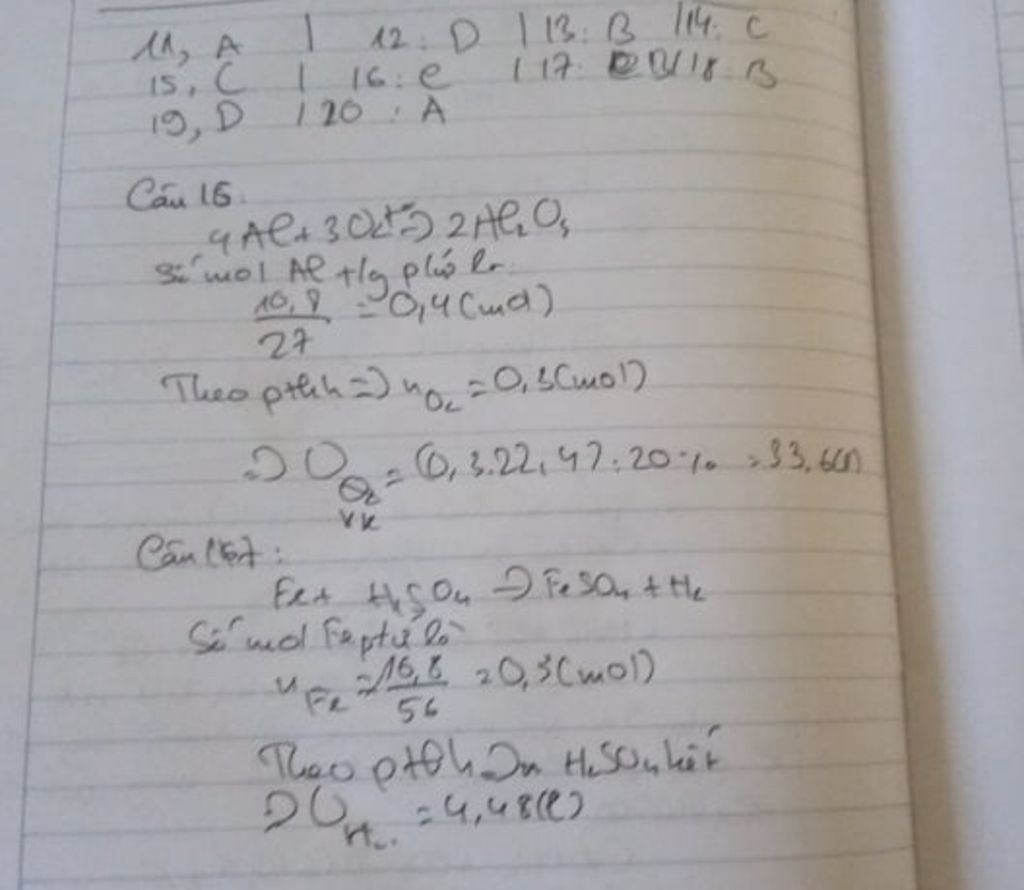 11, A | 12: D | 13: B | 14: C
15, C | 16: C | 17: B | 18: B
19, D | 20: A
Câu 16:
4Al + 3O₂ => 2Al₂O₃
Số mol Al
10,8/27 = 0,4 (mol)
Theo pthh => n O₂ = 0,3 (mol)
=> V O₂ = (0,3.22,4) : 20% = 33,6 (l)
Câu 17:
Fe + H₂SO₄ => FeSO₄ + H₂
Số mol Fe
n Fe = 16,8/56 = 0,3 (mol)
Theo pthh => H₂SO₄ hết
=> V H₂ = 4,48 (l)